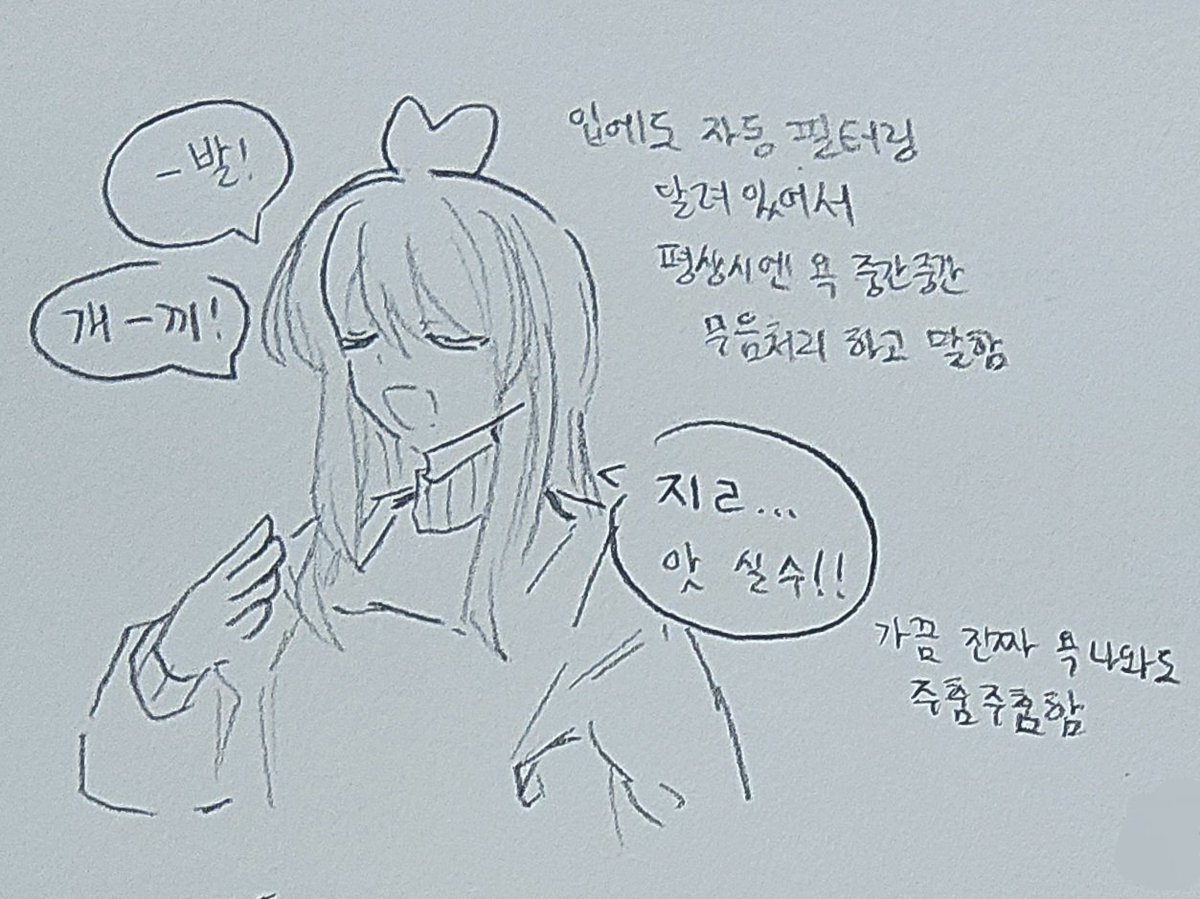 -발!
개-끼!
입에도 자동 필터링
달려있어서
평상시엔 욕 중간중간
무음처리 하고 말함
지ㄹ...
앗 실수!!
가끔 진짜 욕나와도
주춤주춤함